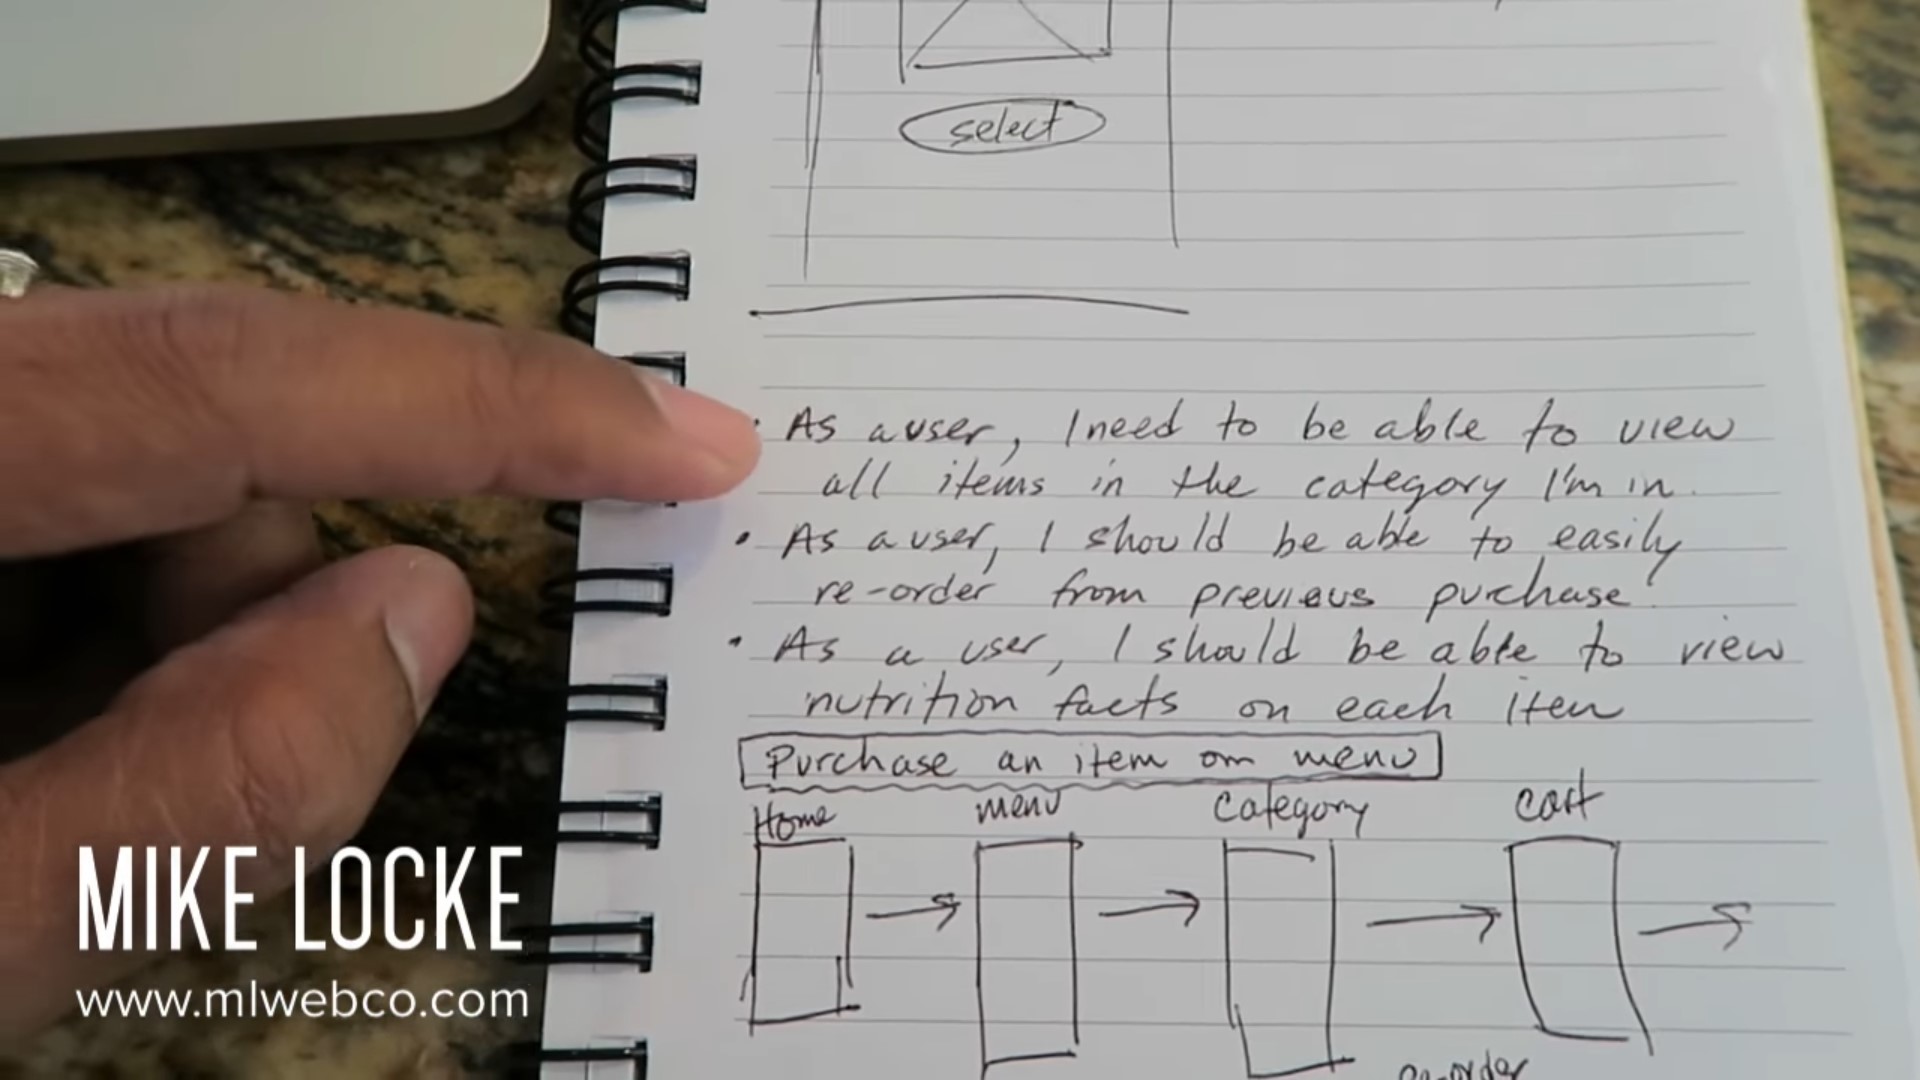 select
• As a user, I need to be able to view
all items in the category I'm in.
• As a user, I should be able to easily
re-order from previous purchase.
• As a user, I should be able to view
nutrition facts on each item
Purchase an item om menu
Home menu Category Cart
re-order
MIKE LOCKE
www.mlwebco.com